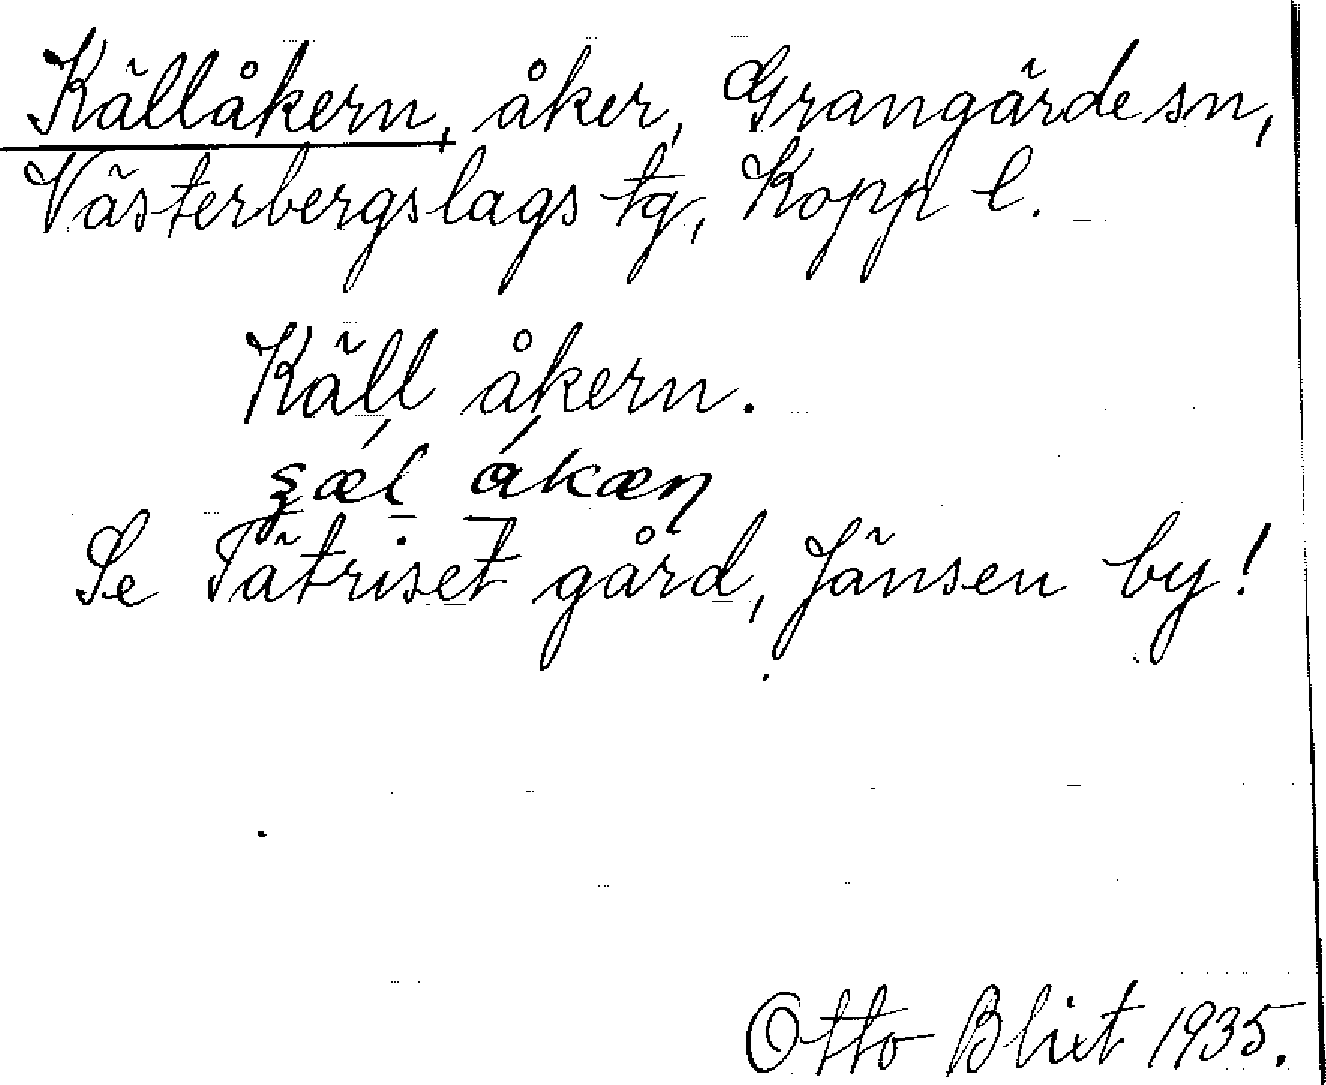 Källåkern, åker, Grangärde sn,
Västerbergslags tg, Kopp l.
Käll åkern.
Se Tätriset gård, Jänsen by!
Otto Blixt 1935.